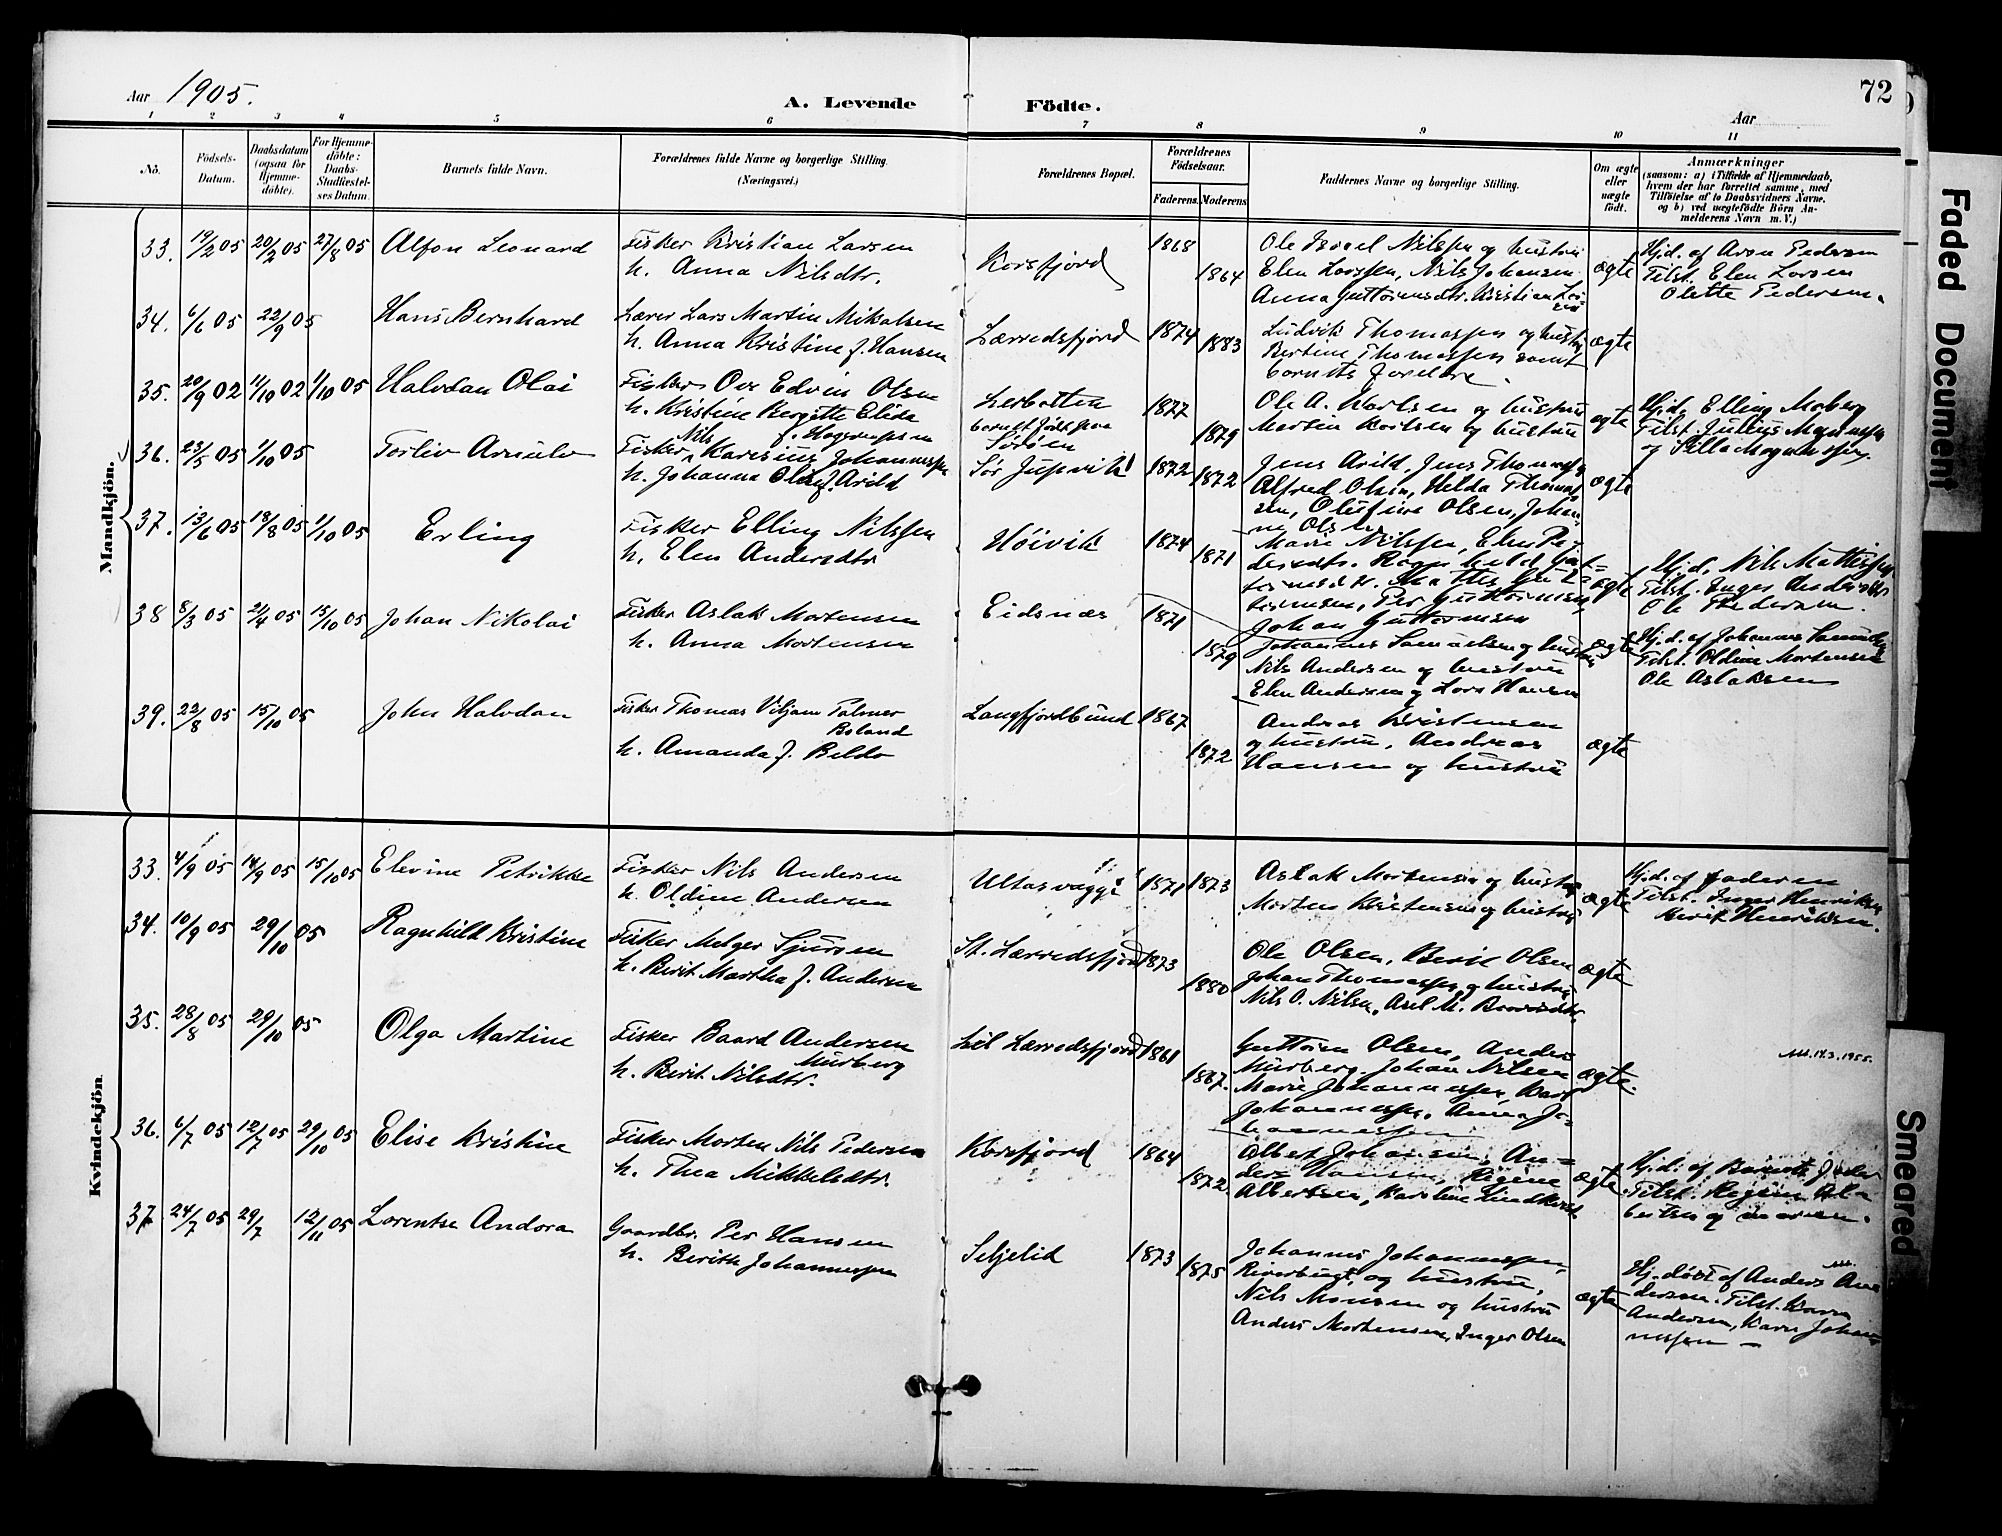 Aar 1905.
A. Levende Födte.
Aar
72
1 2 3 4 5 6 7 8 9 10 11
No.
Födsels-
Datum.
Daabsdatum
(ogsaa för
Hjemme-
döbte).
For Hjemme-
döbte:
Daabs-
Stadfæstel-
ses Datum.
Barnets fulde Navn.
Forældrenes fulde Navne og borgerlige Stilling.
(Næringsvei.)
Forældrenes Bopæl.
Forældrenes
Födselsaar.
Faderens.
Moderens.
Faddernes Navne og borgerlige Stilling.
Om ægte
eller
uægte
född.
Anmærkninger
(saasom: a) i Tilfælde af Hjemmedaab,
hvem der har forrettet samme, med
Tilföielse af to Daabsvidners Navne,
og b) ved uægtefödte Börn An-
melderens Navn m. V.)
Mandkjön.
33. 19/2 05 20/2 05 27/8 05 Alfon Leonard
Fisker Kristian Larsen
h. Anna Nilsdtr.
Korsfjord 1868 1864
Ole Israel Nilssen og hustru
Elen Larssen, Nils Johansen
Anna Guttormsdtr. Kristian Lar
sen
ægte
Hj.d. af Aron Pedersen
Tilst. Elen Larsen
Olette Pedersen.
34. 6/6 05 22/9 05 Hans Bernhard
Lærer Lars Martin Mikalsen
h. Anna Kristine f. Hansen
Lærredsfjord 1874 1883
Ludvik Thomassen og hustru
Bertine Thomassen samt
barnets forældre.
ægte
35. 20/9 02 11/10 02 1/10 05 Halvdan Olai
Fisker Ove Edvin Olsen
h. Kristine Bergitte Elida
f. Mogensen
Lerbotten
barnet født paa
Sørøen
1877 1879
Ole A. Karlsen og hustru
Martin Karlsen og hustru
ægte
Hj.d. Elling Moberg
Tilst. Julius Mogensen
og Silla Mogensen.
36. 23/5 05 1/10 05 Torliv Arnulv
Fisker Nils Karesius Johannessen
h. Johanna Olsen f. Arild
Sør Jupvik 1872 1872
Jens Arild, Jens Thomassen
Alfred Olsen, Helda Thomas
sen, Olufine Olsen, Johan
ne Olsen
ægte
37. 13/6 05 18/8 05 1/10 05 Erling
Fisker Elling Nilssen
h. Elen Andersdtr
Høivik 1874 1871
Marie Nilssen, Elen Pe-
dersdtr. Ragnhild Gut-
tormsdtr. Mattis Gut-
tormsen, Per Guttormsen
Johan Guttormsen
ægte
Hj.d. Nils Mattissen
Tilst. Inger Andersdtr
Ole Pedersen.
38 8/3 05 24/4 05 15/10 05 Johan Nikolai
Fisker Aslak Mortensen
h. Anna Mortensen
Eidsnæs 1871 1879
Johannes Samuelsen og hustru
Nils Andersen og hustru
Elen Andersen og Lars Hansen
ægte
Hj.d. af Johannes Samuelsen
Tilst. Oldine Mortensen
Ole Aslaksen
39. 22/8 05 15/10 05 John Halvdan
Fisker Thomas Viljam Palmer
Boland
h. Amanda f. Beldo
Langfjordbund 1867 1872
Andreas Kristensen
og hustru, Andreas
Hansen og hustru
ægte
Kvindekjön.
33. 4/9 05 14/9 05 15/10 05 Elevine Petrikke
Fisker Nils Andersen
h. Oldine Andersen
Ultasvaggi 1871 1873
Aslak Mortensen og hustru
Morten Kristensen og hustru
ægte
Hj.d. af faderen
Tilst. Inger Henriksen
Berit Henriksen.
34. 10/9 05 29/10 05 Ragnhild Kristine
Fisker Melger Sjursen
h. Berit Martha f. Andersen
St. Lærredsfjord 1873 1880
Ole Olsen, Berit Olsen
Johan Thomassen og hustru
Nils O. Nilsen, Axel M.
ægte
35. 28/8 05 29/10 05 Olga Martine
Fisker Baard Andersen
Murberg
h. Berit Nilsdtr.
Lil Lærredsfjord 1861 1867.
Guttorm Olsen, Anders
Murberg, Johan Nilsen
Marie Johannessen, Karl
Johannessen, Anna Jo-
hannessen
ægte.
14.3.1955.
36. 6/7 05 12/7 05 29/10 05 Elise Kristine
Fisker Morten Nils Pedersen
h. Thea Mikkelsdtr.
Korsfjord 1864 1872.
Albert Johansen, An-
ders Hansen, Regine
Albertsen, Karoline Lindkvist.
ægte
Hj.d. af Barnets fader
Tilst. Regine Al-
bertsen og moren.
37. 24/7 05 29/7 12/11 05 Lorentse Andora
Gaardbr. Per Hansen
h. Berith Johannessen
Seljelid 1873 1875
Johannes Johannessen,
Riverbugt, og hustru,
Nils Monsen og hustru
Anders Mortensen, Inger Olsen
ægte
Hj. døbt af Anders An
dersen. Tilst. Karen
Andersen, Karn Johan
nessen —
Faded Document
Smeared